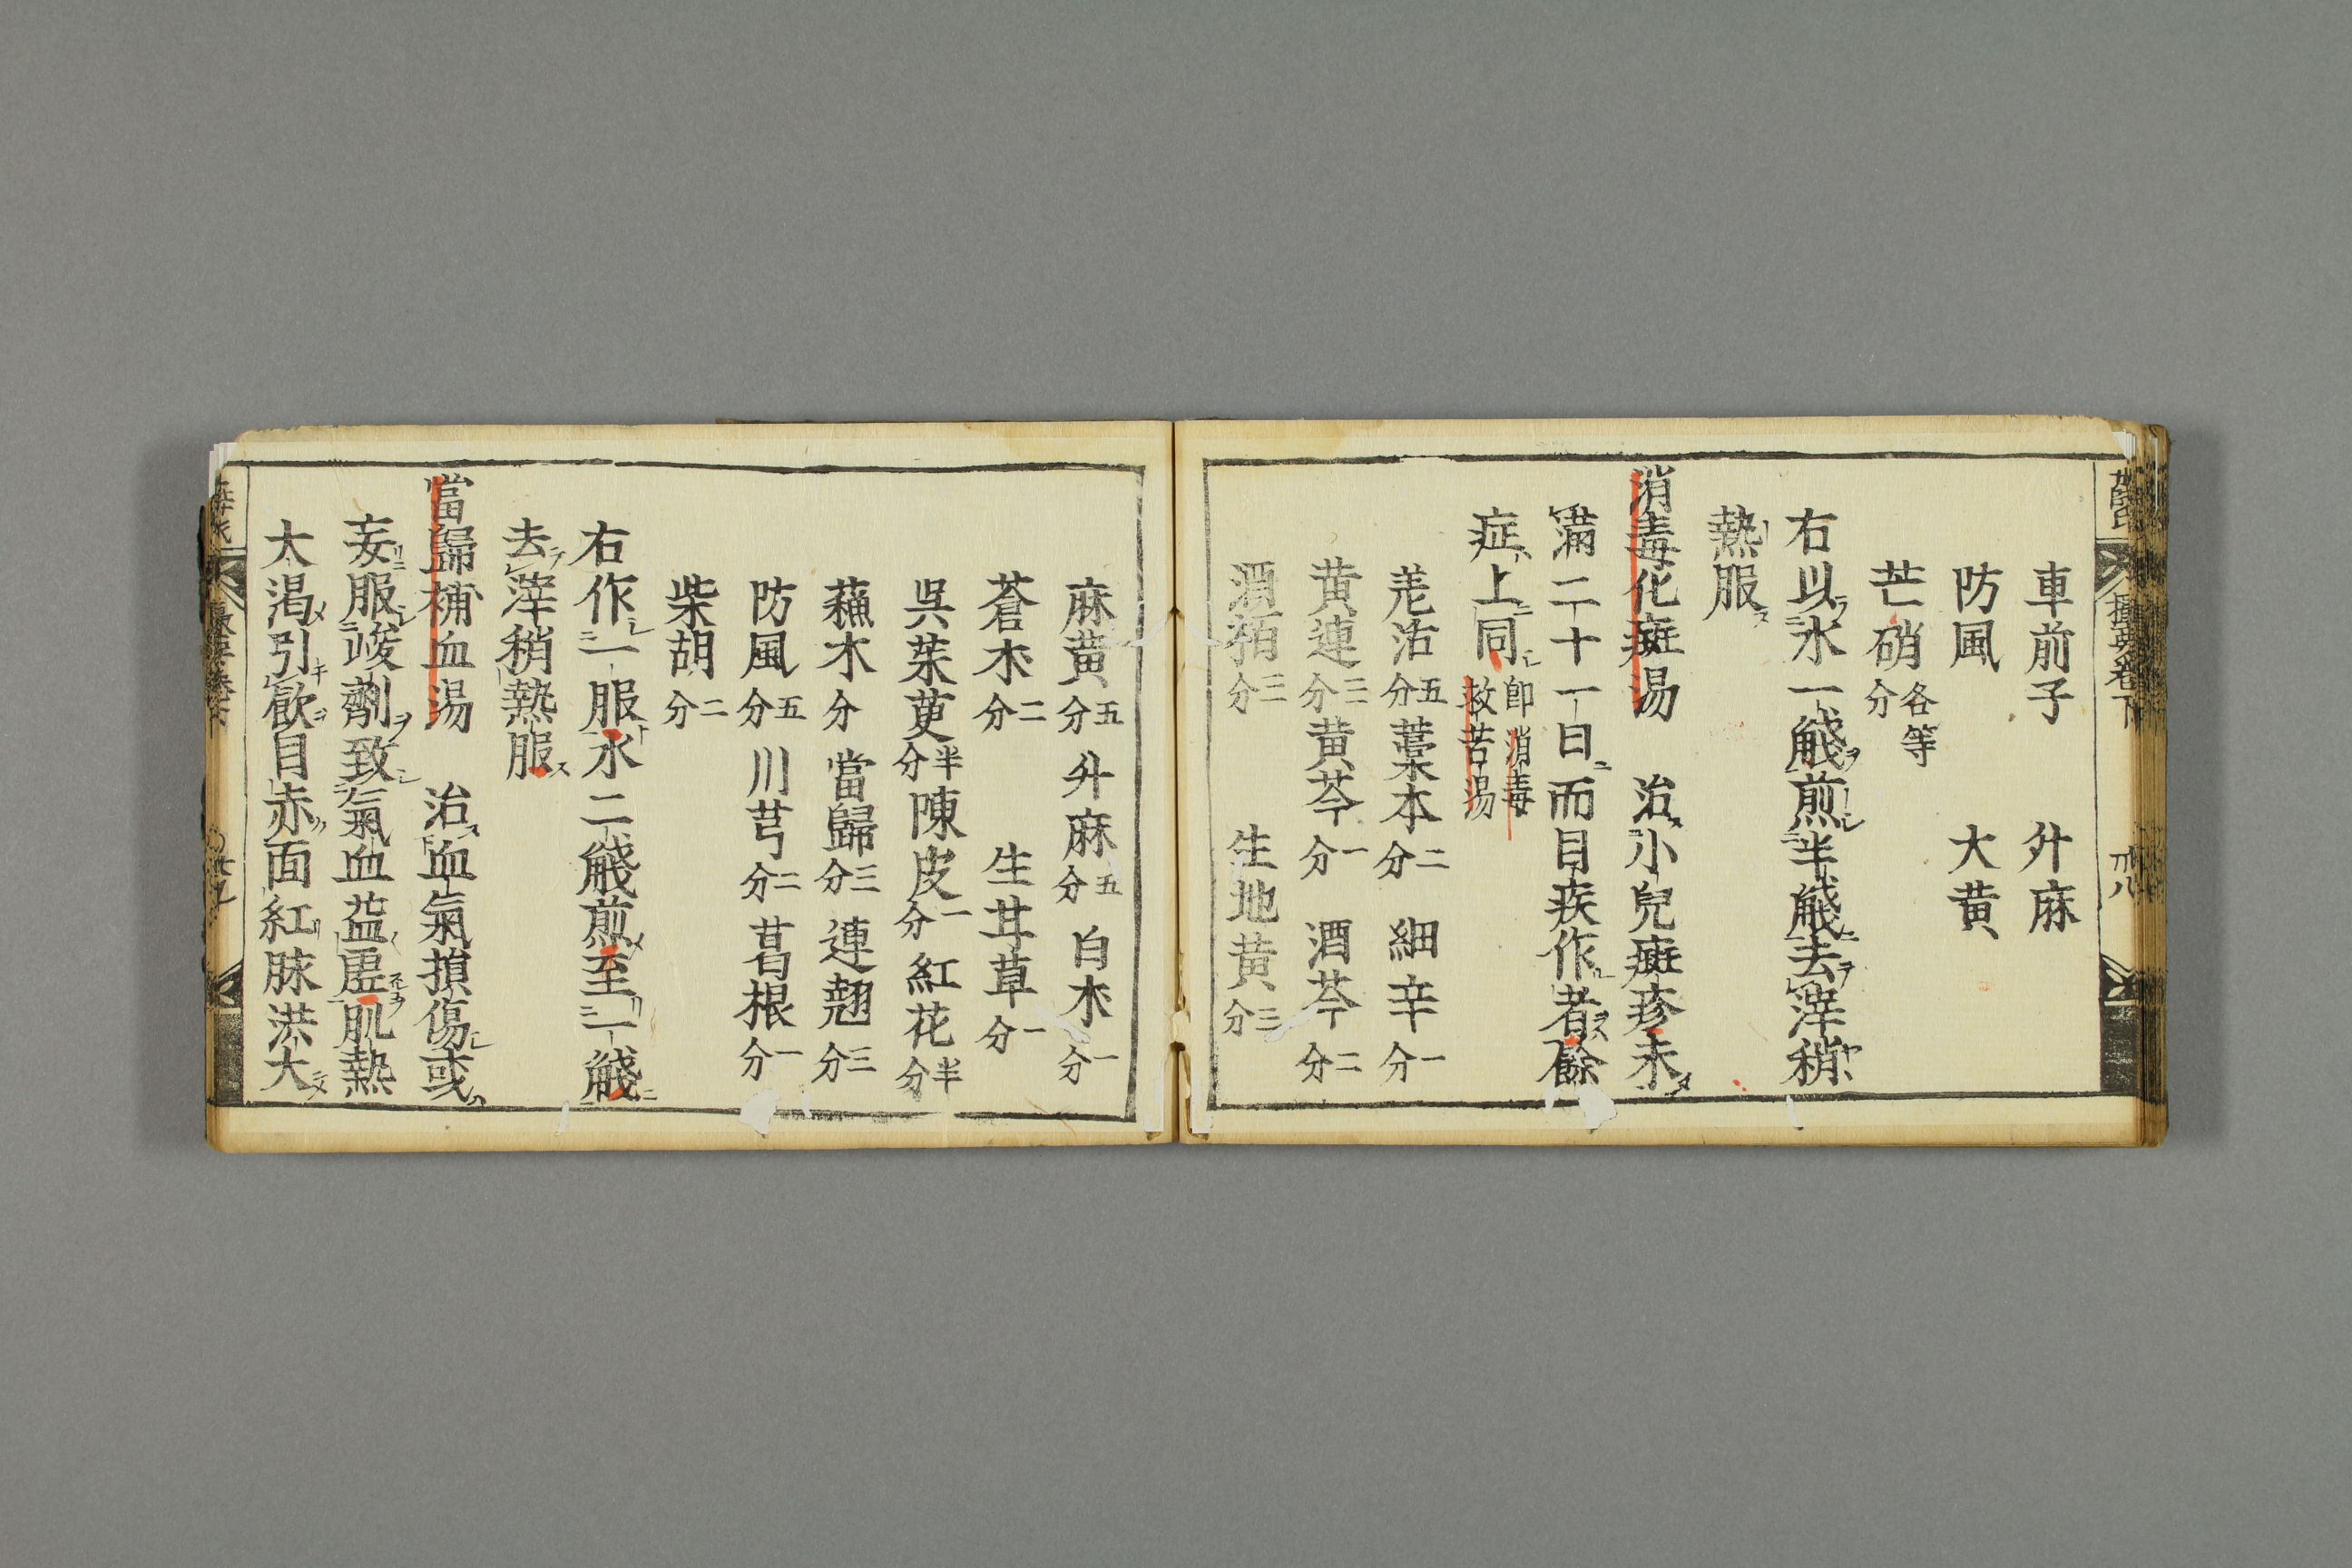 車前子　升麻
防風　大黄
芒硝各等分
右以水一䤼煎半䤼去滓稍
熱服
消毒化斑湯　治小兒斑疹未
滿二十一日而目疾作者餘
症上同即消毒救苦湯
羌活五分藁本二分　細辛一分
黄連三分黄芩一分　酒芩二分
酒栢三分　生地黄三分
麻黄五分升麻五分白朮一分
蒼朮二分　生甘草一分
呉茱萸半分陳皮一分紅花半分
蘓木分　當歸三分連翹三分
防風五分川芎二分葛根一分
柴胡二分
右作一服水二䤼煎至一䤼
去滓稍熱服
當歸補血湯　治血氣損傷或
妄服峻劑致氣血益虚肌熱
大渴引飲目赤面紅脉洪大